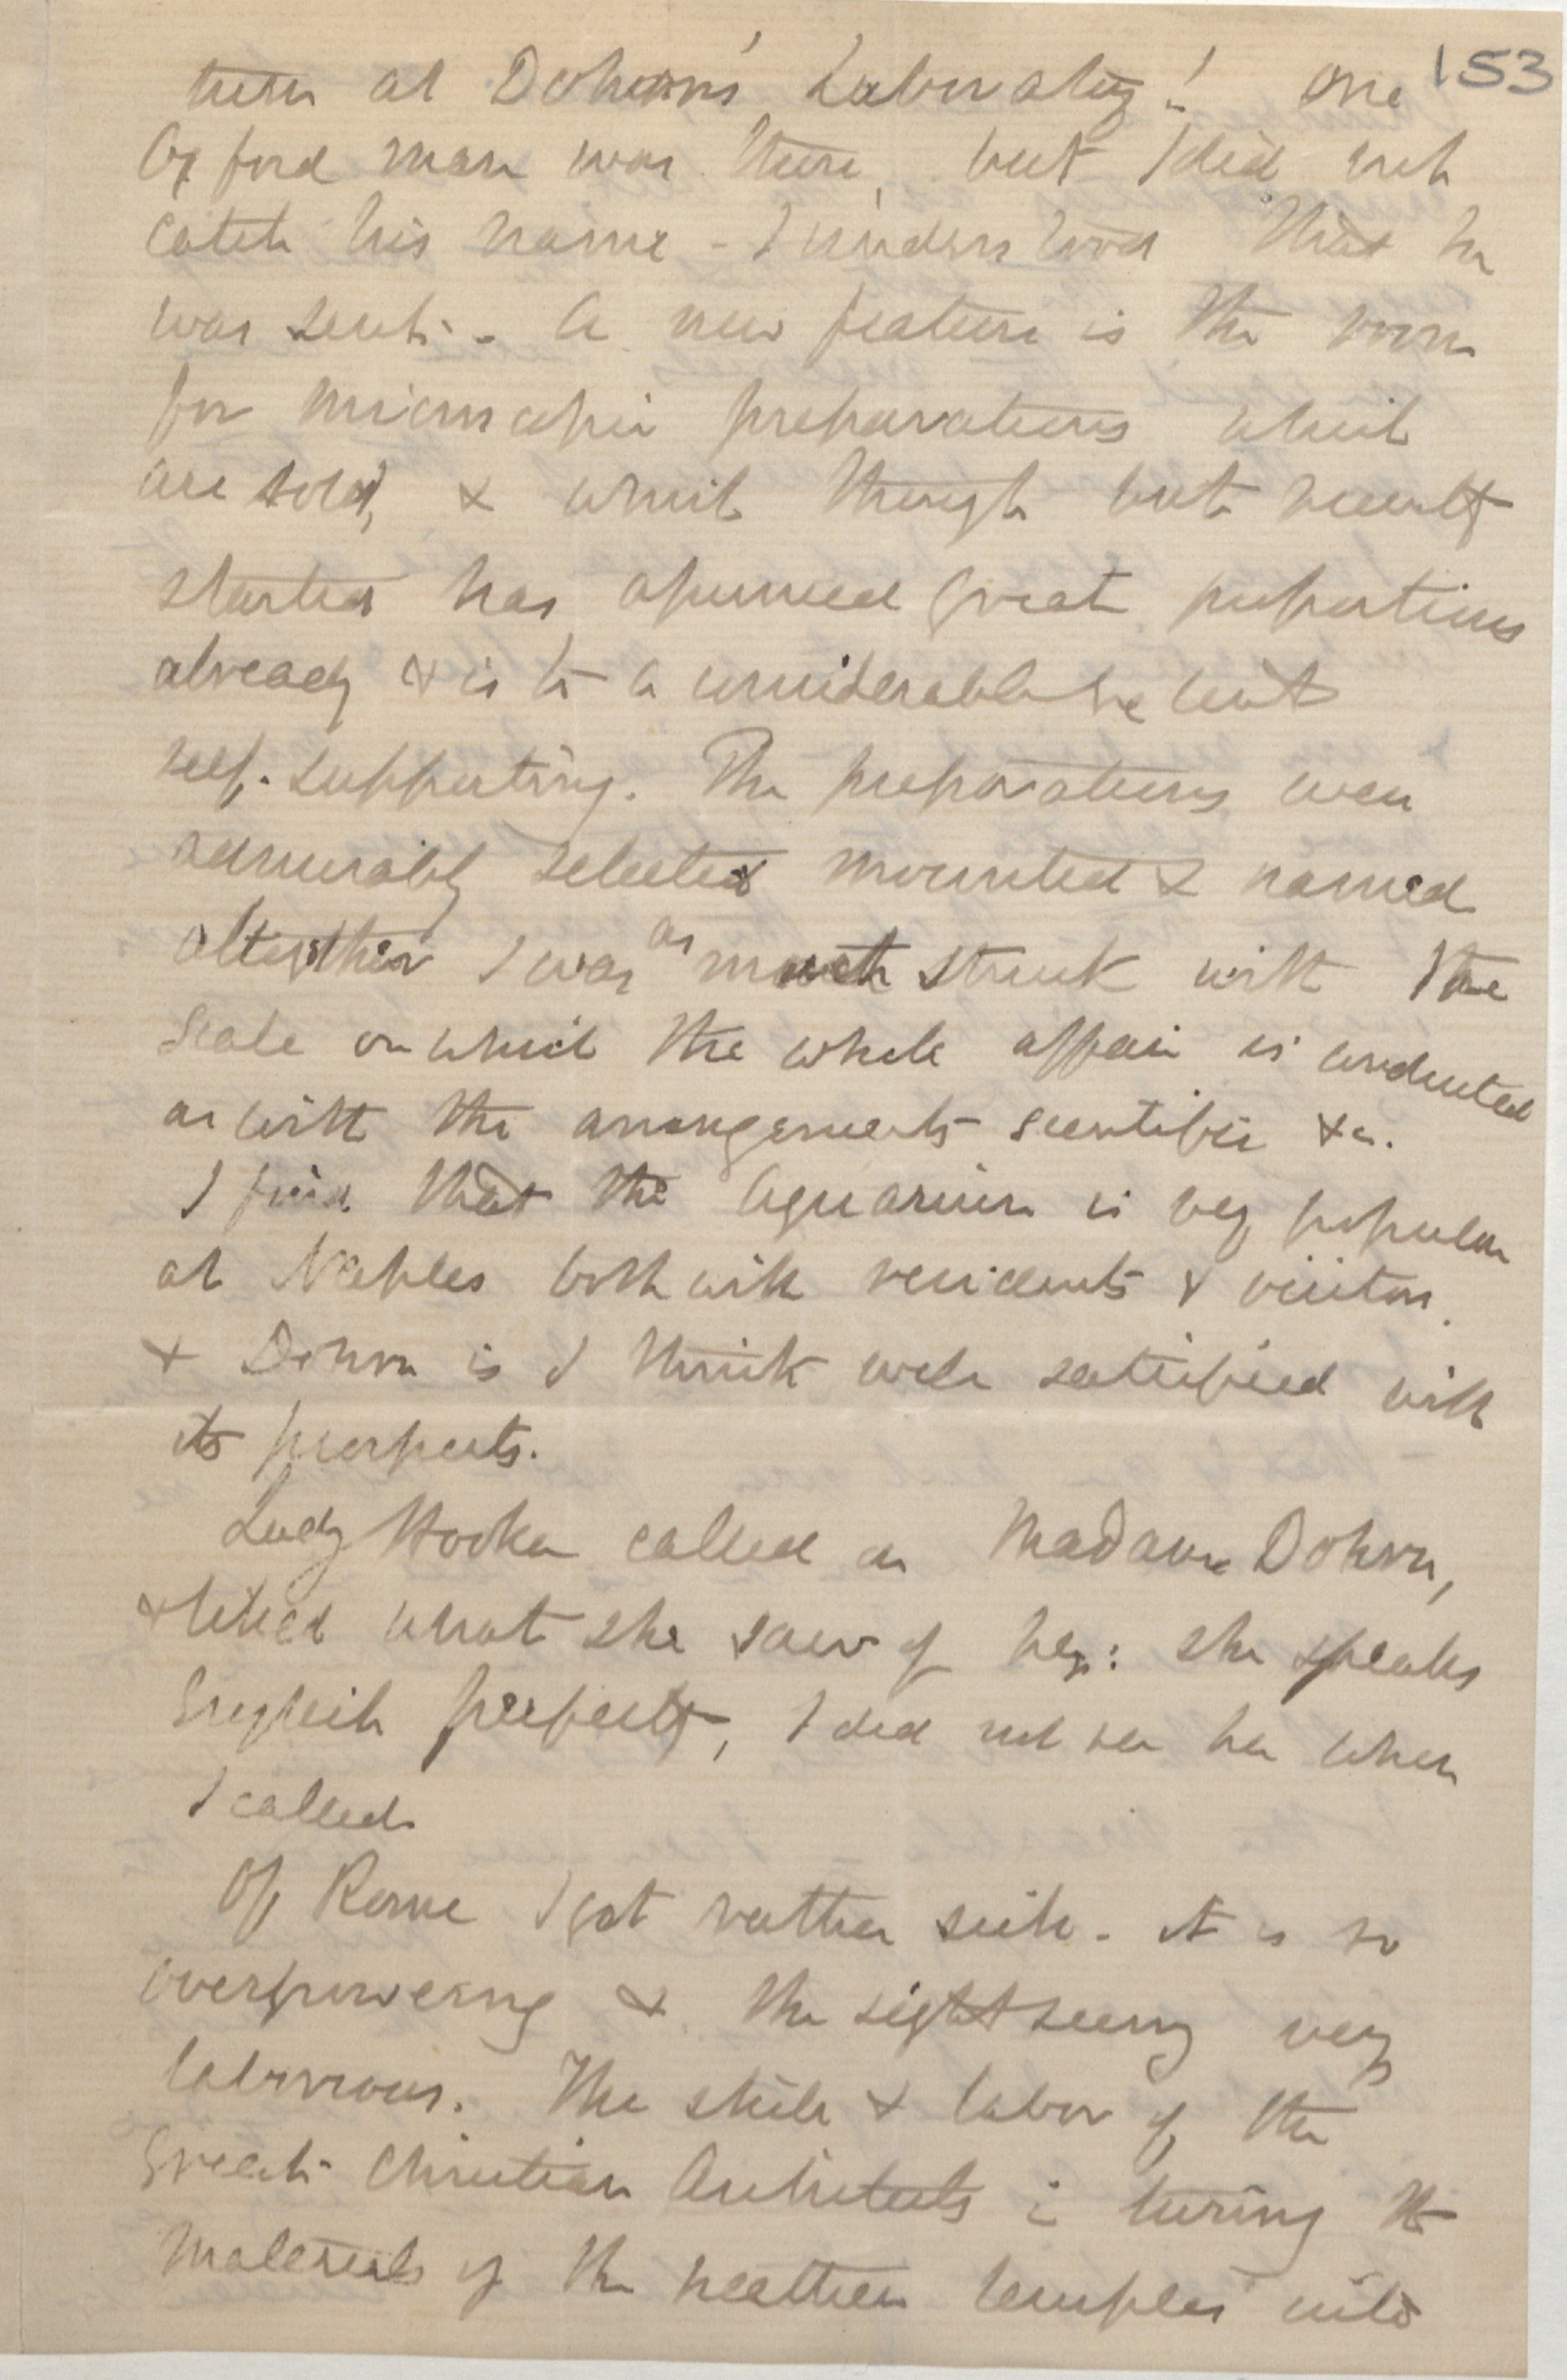 them at Dohrn's Laboratory! One 153
Oxford man was there, but I did not
catch his name - I understood that he
was sent. - A new feature is the room
for microscopic preparations which
are sold, & which though but recently
started has assumed great proportions
already & is to a considerable extent
self-supporting. The preparations were
admirably selected mounted & named
altogether I was as much struck with the
scale on which the whole affair is conducted
as with the arrangements scientific &c.
I find that the Aquarium is very popular
at Naples both with residents & visitors.
& Dohrn is I think well satisfied with
its prospects.
Lady Hooker called on Madame Dohrn,
& liked what she saw of her: she speaks
English perfectly, I did not see her when
I called.
Of Rome I got rather sick. it is so
overpowering & the sightseeing very
laborious. The skill & labor of the
Great Christian Architects in turning the
materials of the heathen temples into